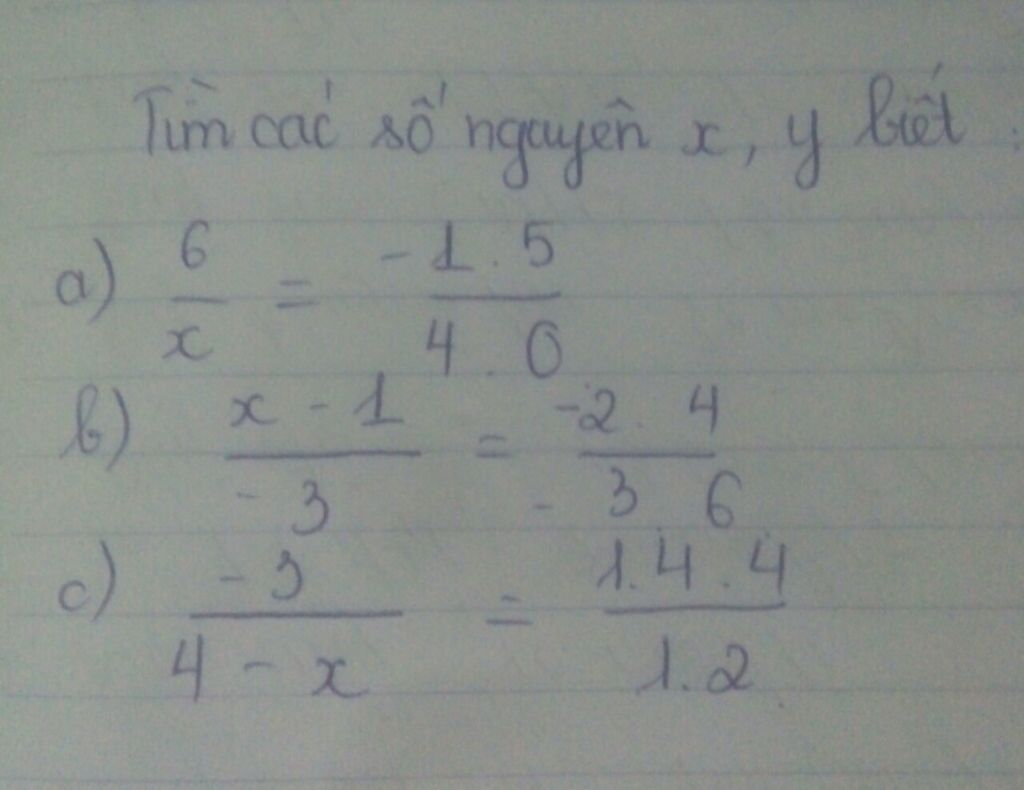 Tìm các số nguyên x, y biết :
a) 6/x = -1.5/4.0
b) x-1/-3 = -2.4/-3 6
c) -3/4-x = 1.4.4/1.2